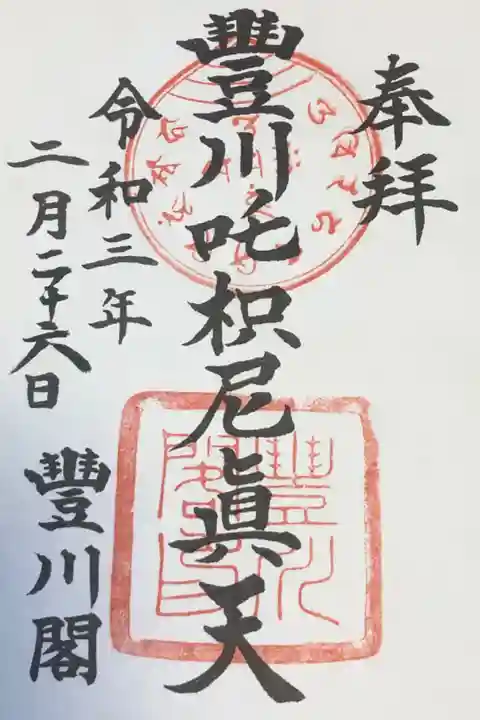 奉拝
豐川吒枳尼眞天
令和三年
二月二十六日
豐川閣